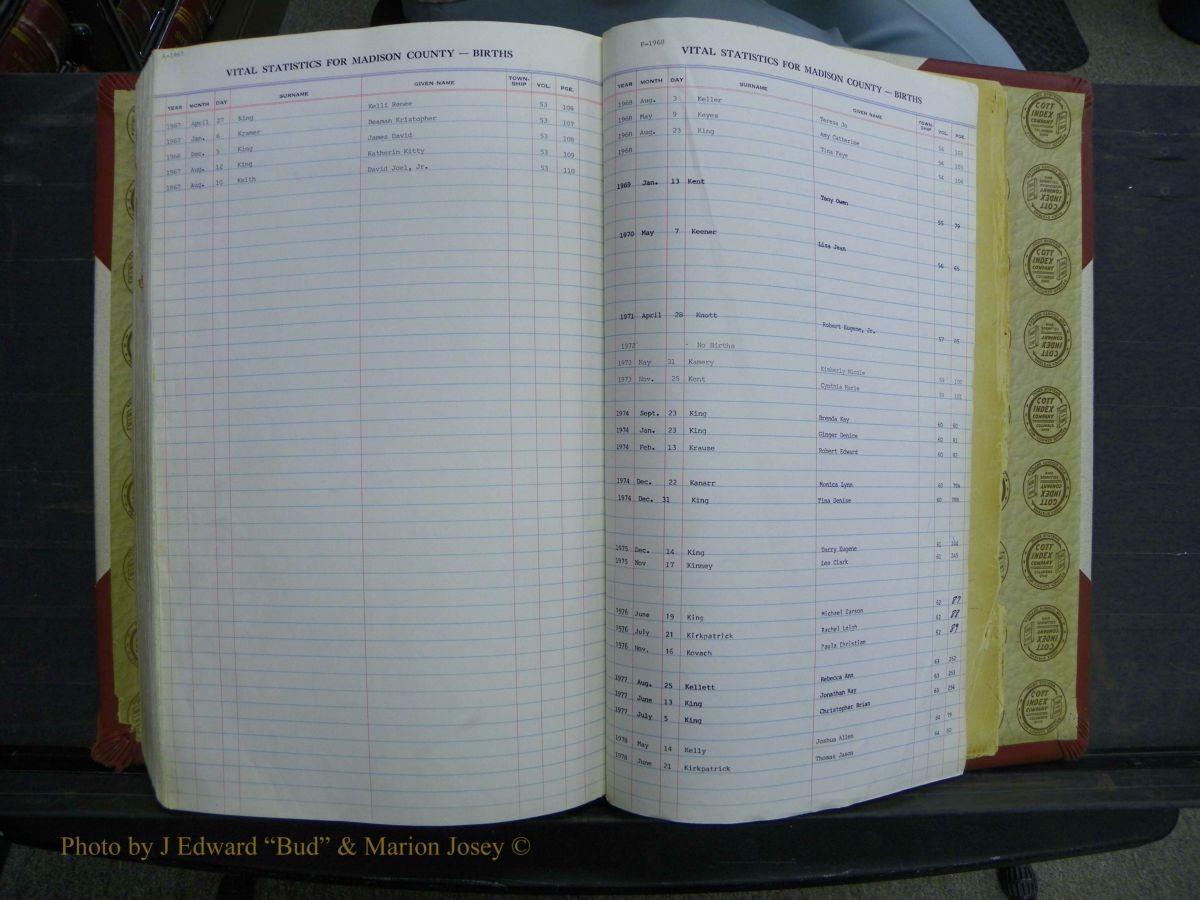 VITAL STATISTICS FOR MADISON COUNTY — BIRTHS
YEAR MONTH DAY SURNAME GIVEN NAME TOWN-SHIP VOL. PGE.
1967 April 27 King Kelli Renee 53 106
1967 Jan. 6 Kramer Deaman Kristopher 53 107
1966 Dec. 5 King James David 53 108
1967 Aug. 12 King Katherin Kitty 53 109
1967 Aug. 10 Keith David Joel, Jr. 53 110
F-1968
VITAL STATISTICS FOR MADISON COUNTY — BIRTHS
YEAR MONTH DAY SURNAME GIVEN NAME TOWN-SHIP VOL. PGE.
1968 Aug. 3 Keller Teresa Jo 54
1968 May 9 Keyes Amy Catherine 54
1968 Aug. 23 King Tina Faye 54
1968
1969 Jan. 13 Kent Tony Owen 55 79
1970 May 7 Keener Lisa Jean 56 65
1971 April 28 Knott Robert Eugene, Jr. 57 85
1972 - No Births
1973 May 31 Kamery Kimberly Nicole 59 100
1973 Nov. 25 Kent Cynthia Marie 59 101
1974 Sept. 23 King Brenda Kay 60 80
1974 Jan. 23 King Ginger Denice 60 81
1974 Feb. 13 Krause Robert Edward 60 82
1974 Dec. 22 Kanarr Monica Lynn 60
1974 Dec. 31 King Tina Denise 60
1975 Dec. 14 King Terry Eugene 61
1975 Nov 17 Kinney Lee Clark 61
1976 June 19 King Michael Carson 62 87
1976 July 21 Kirkpatrick Rachel Leigh 62 88
1976 Nov. 16 Kovach Paula Christian 62 89
1977 Aug. 25 Kellett Rebecca Ann 63 252
1977 June 13 King Jonathan Ray 63 253
1977 July 5 King Christopher Brian 63 254
1978 May 14 Kelly Joshua Allen 64 79
1978 June 21 Kirkpatrick Thomas Jason 64 80
COTT INDEX COMPANY
Photo by J Edward “Bud” & Marion Josey ©